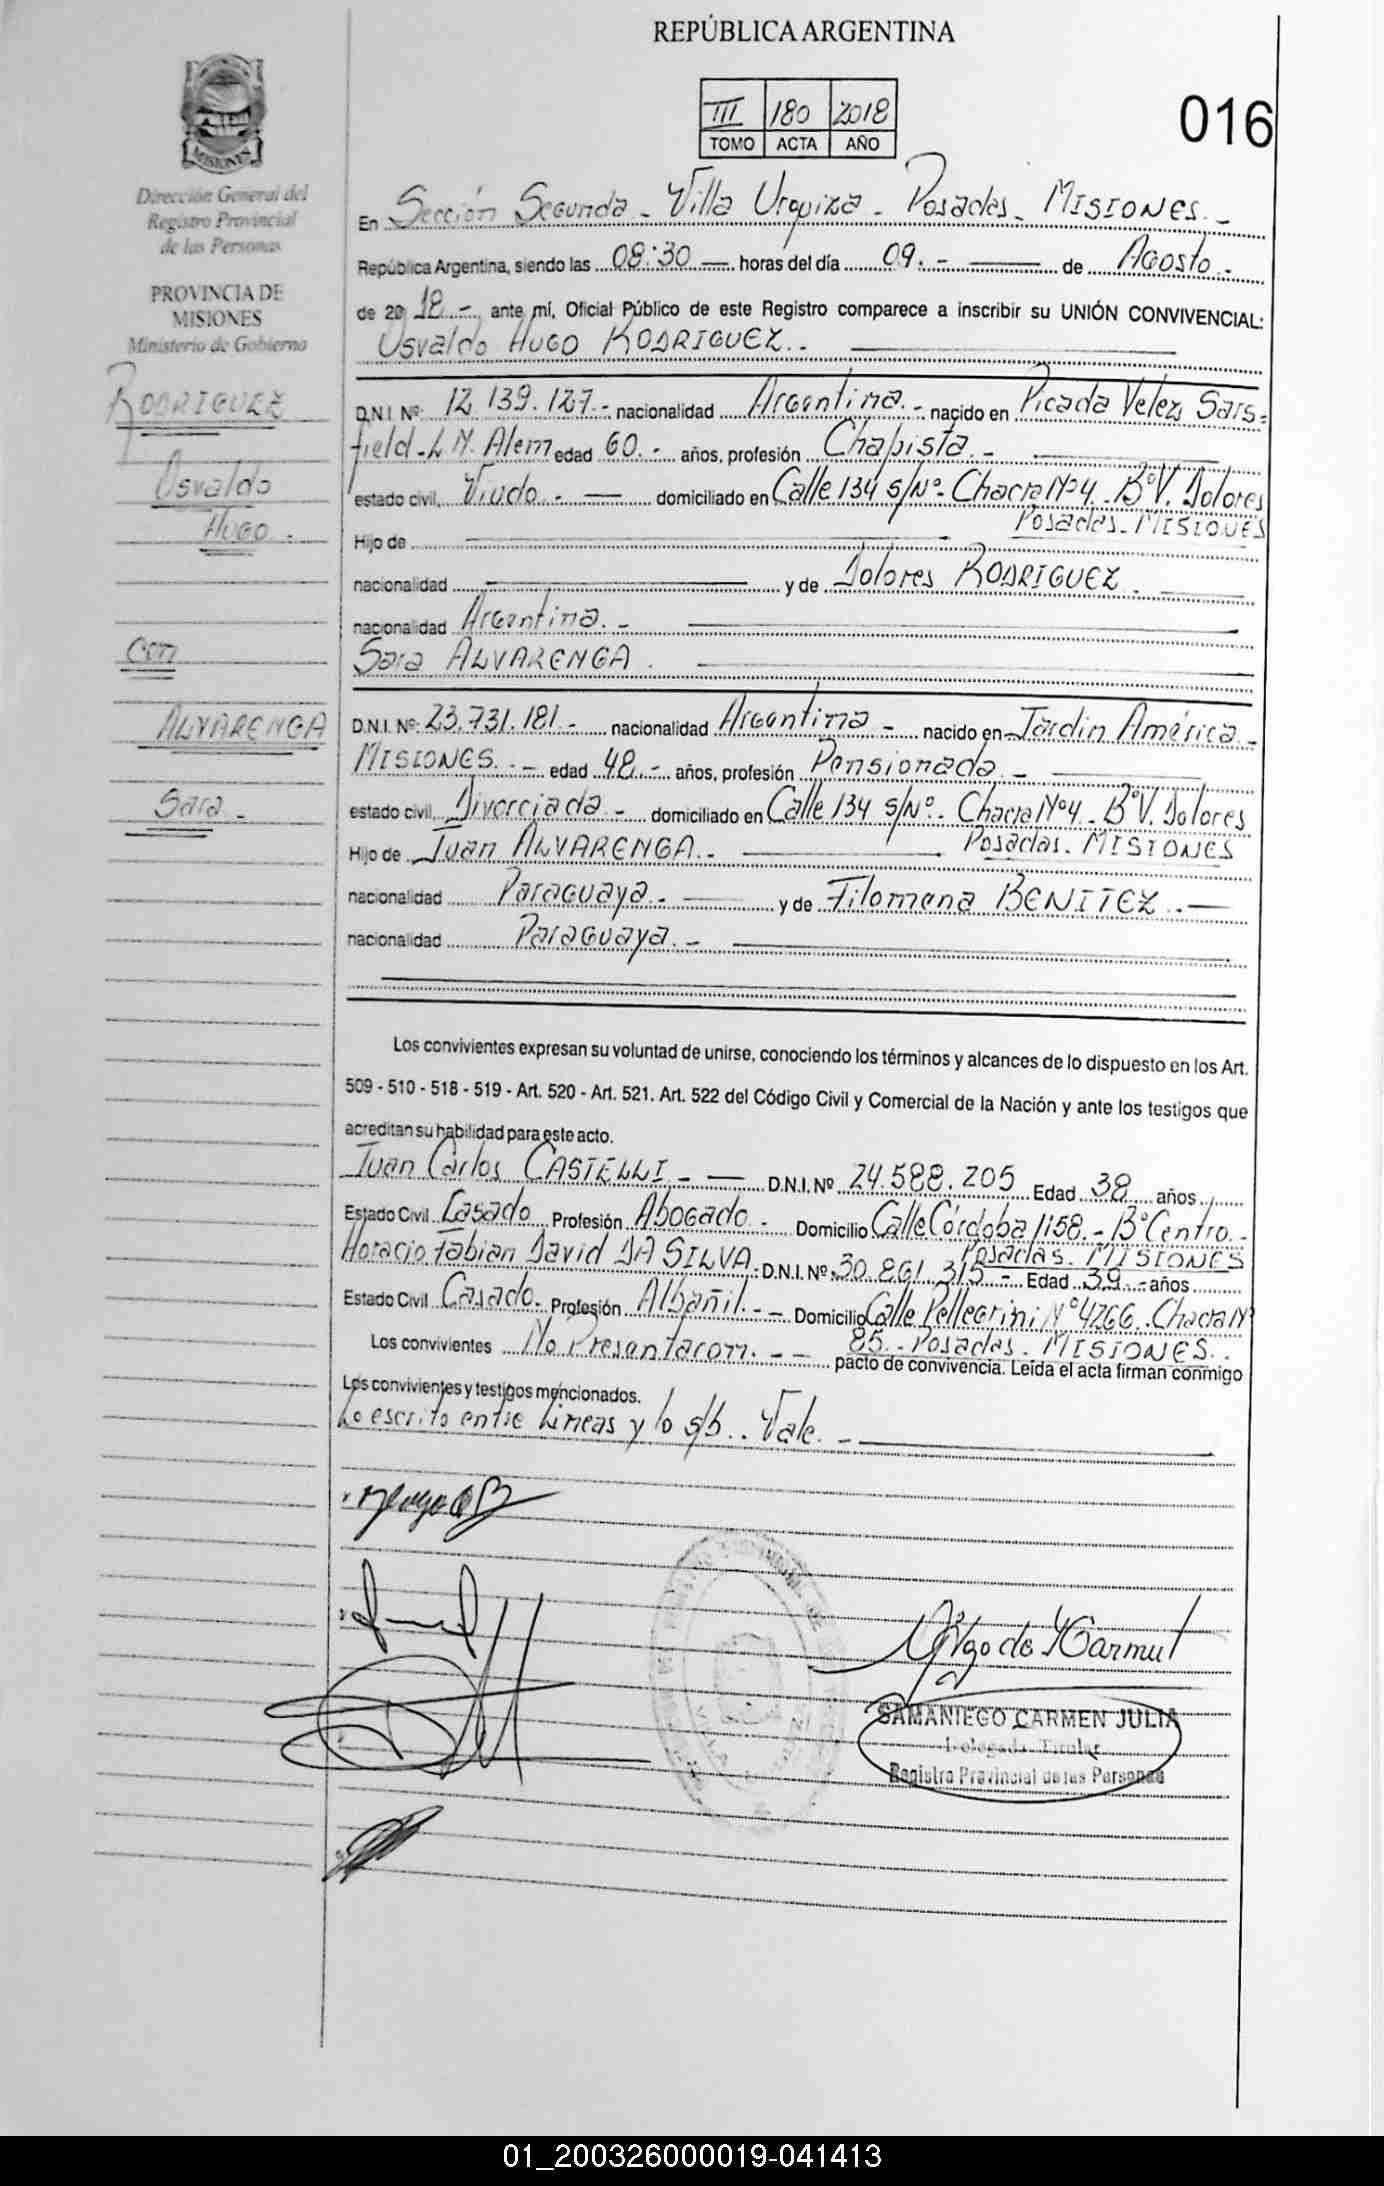 REPÚBLICA ARGENTINA
III 180 2018
TOMO ACTA AÑO
016
MISIONES
Dirección General del
Registro Provincial
de las Personas
PROVINCIA DE
MISIONES
Ministerio de Gobierno
RODRIGUEZ
Osvaldo
HUGO.
Con
ALVARENGA
Sara -
En Sección Segunda - Villa Urquiza - Posadas - MISIONES. -
República Argentina, siendo las 08:30 — horas del día 09. - — de Agosto. -
de 2018 -, ante mí, Oficial Público de este Registro comparece a inscribir su UNIÓN CONVIVENCIAL:
Osvaldo HUGO RODRIGUEZ. -
D.N.I. Nº 12.139.127. - nacionalidad Argentina. - nacido en Picada Velez Sars-
field - L.N. Alem edad 60. - años, profesión Chapista. -
estado civil, Viudo. - — domiciliado en Calle 134 S/Nº - Chacra Nº4. Bº V. Dolores
Posadas - MISIONES
Hijo de
nacionalidad y de Dolores RODRIGUEZ.
nacionalidad Argentina. -
Sara ALVARENGA.
D.N.I. Nº 23.731.181. - nacionalidad Argentina - nacido en Jardin América -
MISIONES. - edad 48. - años, profesión Pensionada. -
estado civil, Divorciada - domiciliado en Calle 134 S/Nº. Chacra Nº4. Bº V. Dolores
Posadas. MISIONES
Hijo de Juan ALVARENGA. -
nacionalidad Paraguaya. - y de Filomena BENITEZ. -
nacionalidad Paraguaya. -
Los convivientes expresan su voluntad de unirse, conociendo los términos y alcances de lo dispuesto en los Art.
509 - 510 - 518 - 519 - Art. 520 - Art. 521. Art. 522 del Código Civil y Comercial de la Nación y ante los testigos que
acreditan su habilidad para este acto.
Juan Carlos CASTELLI - — D.N.I. Nº 24.588.205 Edad 38 años
Estado Civil Casado Profesión Abogado - Domicilio Calle Córdoba 1158. - Bº Centro. -
Posadas. MISIONES
Horacio Fabian David DA SILVA. D.N.I. Nº 30.861.315 - Edad 39. - años
Estado Civil Casado. Profesión Albañil. - Domicilio Calle Pellegrini Nº 4266. Chacra Nº
85. Posadas. MISIONES.
Los convivientes No Presentaron. - - pacto de convivencia. Leída el acta firman conmigo
Los convivientes y testigos mencionados.
Lo escrito entre Lineas y lo s/b. Vale. -
SAMANIEGO CARMEN JULIA
Delegada Titular
Registro Provincial de las Personas
01_200326000019-041413